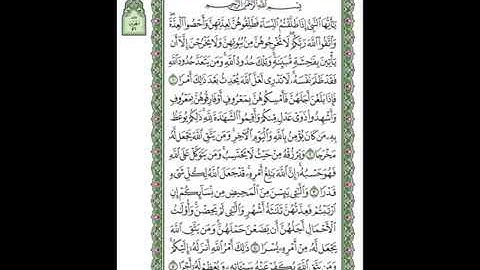 بِسْمِ اللَّهِ الرَّحْمَٰنِ الرَّحِيمِ
يَا أَيُّهَا النَّبِيُّ إِذَا طَلَّقْتُمُ النِّسَاءَ فَطَلِّقُوهُنَّ لِعِدَّتِهِنَّ وَأَحْصُوا الْعِدَّةَ
وَاتَّقُوا اللَّهَ رَبَّكُمْ لَا تُخْرِجُوهُنَّ مِن بُيُوتِهِنَّ وَلَا يَخْرُجْنَ إِلَّا أَن
يَأْتِينَ بِفَاحِشَةٍ مُّبَيِّنَةٍ وَتِلْكَ حُدُودُ اللَّهِ وَمَن يَتَعَدَّ حُدُودَ اللَّهِ
فَقَدْ ظَلَمَ نَفْسَهُ لَا تَدْرِي لَعَلَّ اللَّهَ يُحْدِثُ بَعْدَ ذَٰلِكَ أَمْرًا ١
فَإِذَا بَلَغْنَ أَجَلَهُنَّ فَأَمْسِكُوهُنَّ بِمَعْرُوفٍ أَوْ فَارِقُوهُنَّ بِمَعْرُوفٍ
وَأَشْهِدُوا ذَوَيْ عَدْلٍ مِّنكُمْ وَأَقِيمُوا الشَّهَادَةَ لِلَّهِ ذَٰلِكُمْ يُوعَظُ
بِهِ مَن كَانَ يُؤْمِنُ بِاللَّهِ وَالْيَوْمِ الْآخِرِ وَمَن يَتَّقِ اللَّهَ يَجْعَل لَّهُ
مَخْرَجًا ٢ وَيَرْزُقْهُ مِنْ حَيْثُ لَا يَحْتَسِبُ وَمَن يَتَوَكَّلْ عَلَى اللَّهِ
فَهُوَ حَسْبُهُ إِنَّ اللَّهَ بَالِغُ أَمْرِهِ قَدْ جَعَلَ اللَّهُ لِكُلِّ شَيْءٍ
قَدْرًا ٣ وَاللَّائِي يَئِسْنَ مِنَ الْمَحِيضِ مِن نِّسَائِكُمْ إِنِ
ارْتَبْتُمْ فَعِدَّتُهُنَّ ثَلَاثَةُ أَشْهُرٍ وَاللَّائِي لَمْ يَحِضْنَ وَأُولَاتُ
الْأَحْمَالِ أَجَلُهُنَّ أَن يَضَعْنَ حَمْلَهُنَّ وَمَن يَتَّقِ اللَّهَ
يَجْعَل لَّهُ مِنْ أَمْرِهِ يُسْرًا ٤ ذَٰلِكَ أَمْرُ اللَّهِ أَنزَلَهُ إِلَيْكُمْ
وَمَن يَتَّقِ اللَّهَ يُكَفِّرْ عَنْهُ سَيِّئَاتِهِ وَيُعْظِمْ لَهُ أَجْرًا ٥